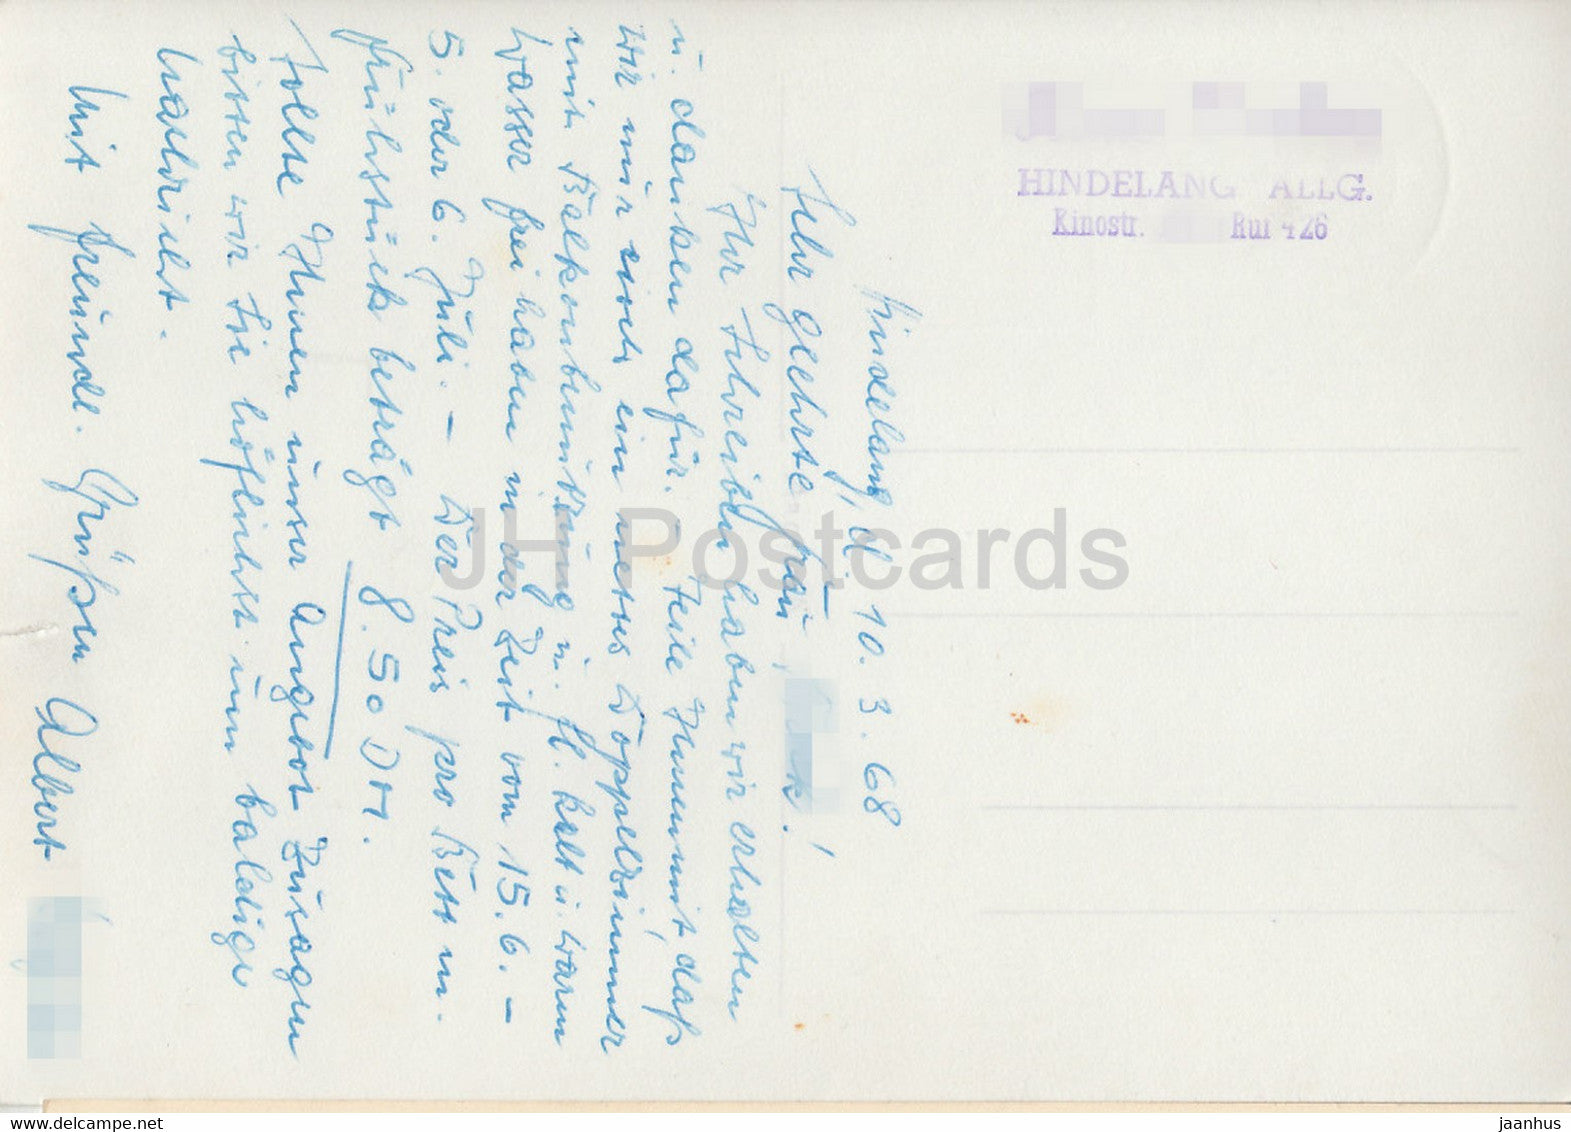 HINDELANG ALLG.
Kinostr. Ruf 426
Hindelang, d. 10. 3. 68
Sehr geehrte Frau !
Ihr Schreiben haben wir erhalten
u. danken dafür. – Teile Ihnen mit, daß
wir nur noch ein nettes Doppelzimmer
mit Balkonbenützung u. fl. kalt u. warm
Wasser frei haben in der Zeit vom 15. 6. –
5. oder 6. Juli. – Der Preis pro Bett m.
Frühstück beträgt 8.50 DM.
Sollte Ihnen unser Angebot zusagen
bitten wir Sie höflichst um baldige
Nachricht.
Mit freundl. Grüßen Albert
JH Postcards
www.delcampe.net
jaanhus